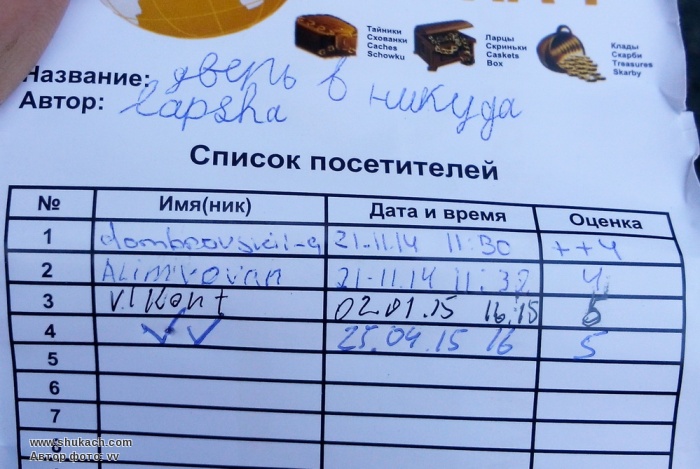 Тайники
Схованки
Caches
Schowku
Ларцы
Скриньки
Caskets
Box
Клады
Скарби
Treasures
Skarby
Название: дверь в никуда
Автор: lapsha
Список посетителей
№ Имя(ник) Дата и время Оценка
1 21.11.14 11:30 ++4
2 21.11.14 11:32 4
3 Vikont 02.01.15 16:15 5
4 VV 25.04.15 16 5
5
6
7
8
www.shukach.com
Автор фото: vv